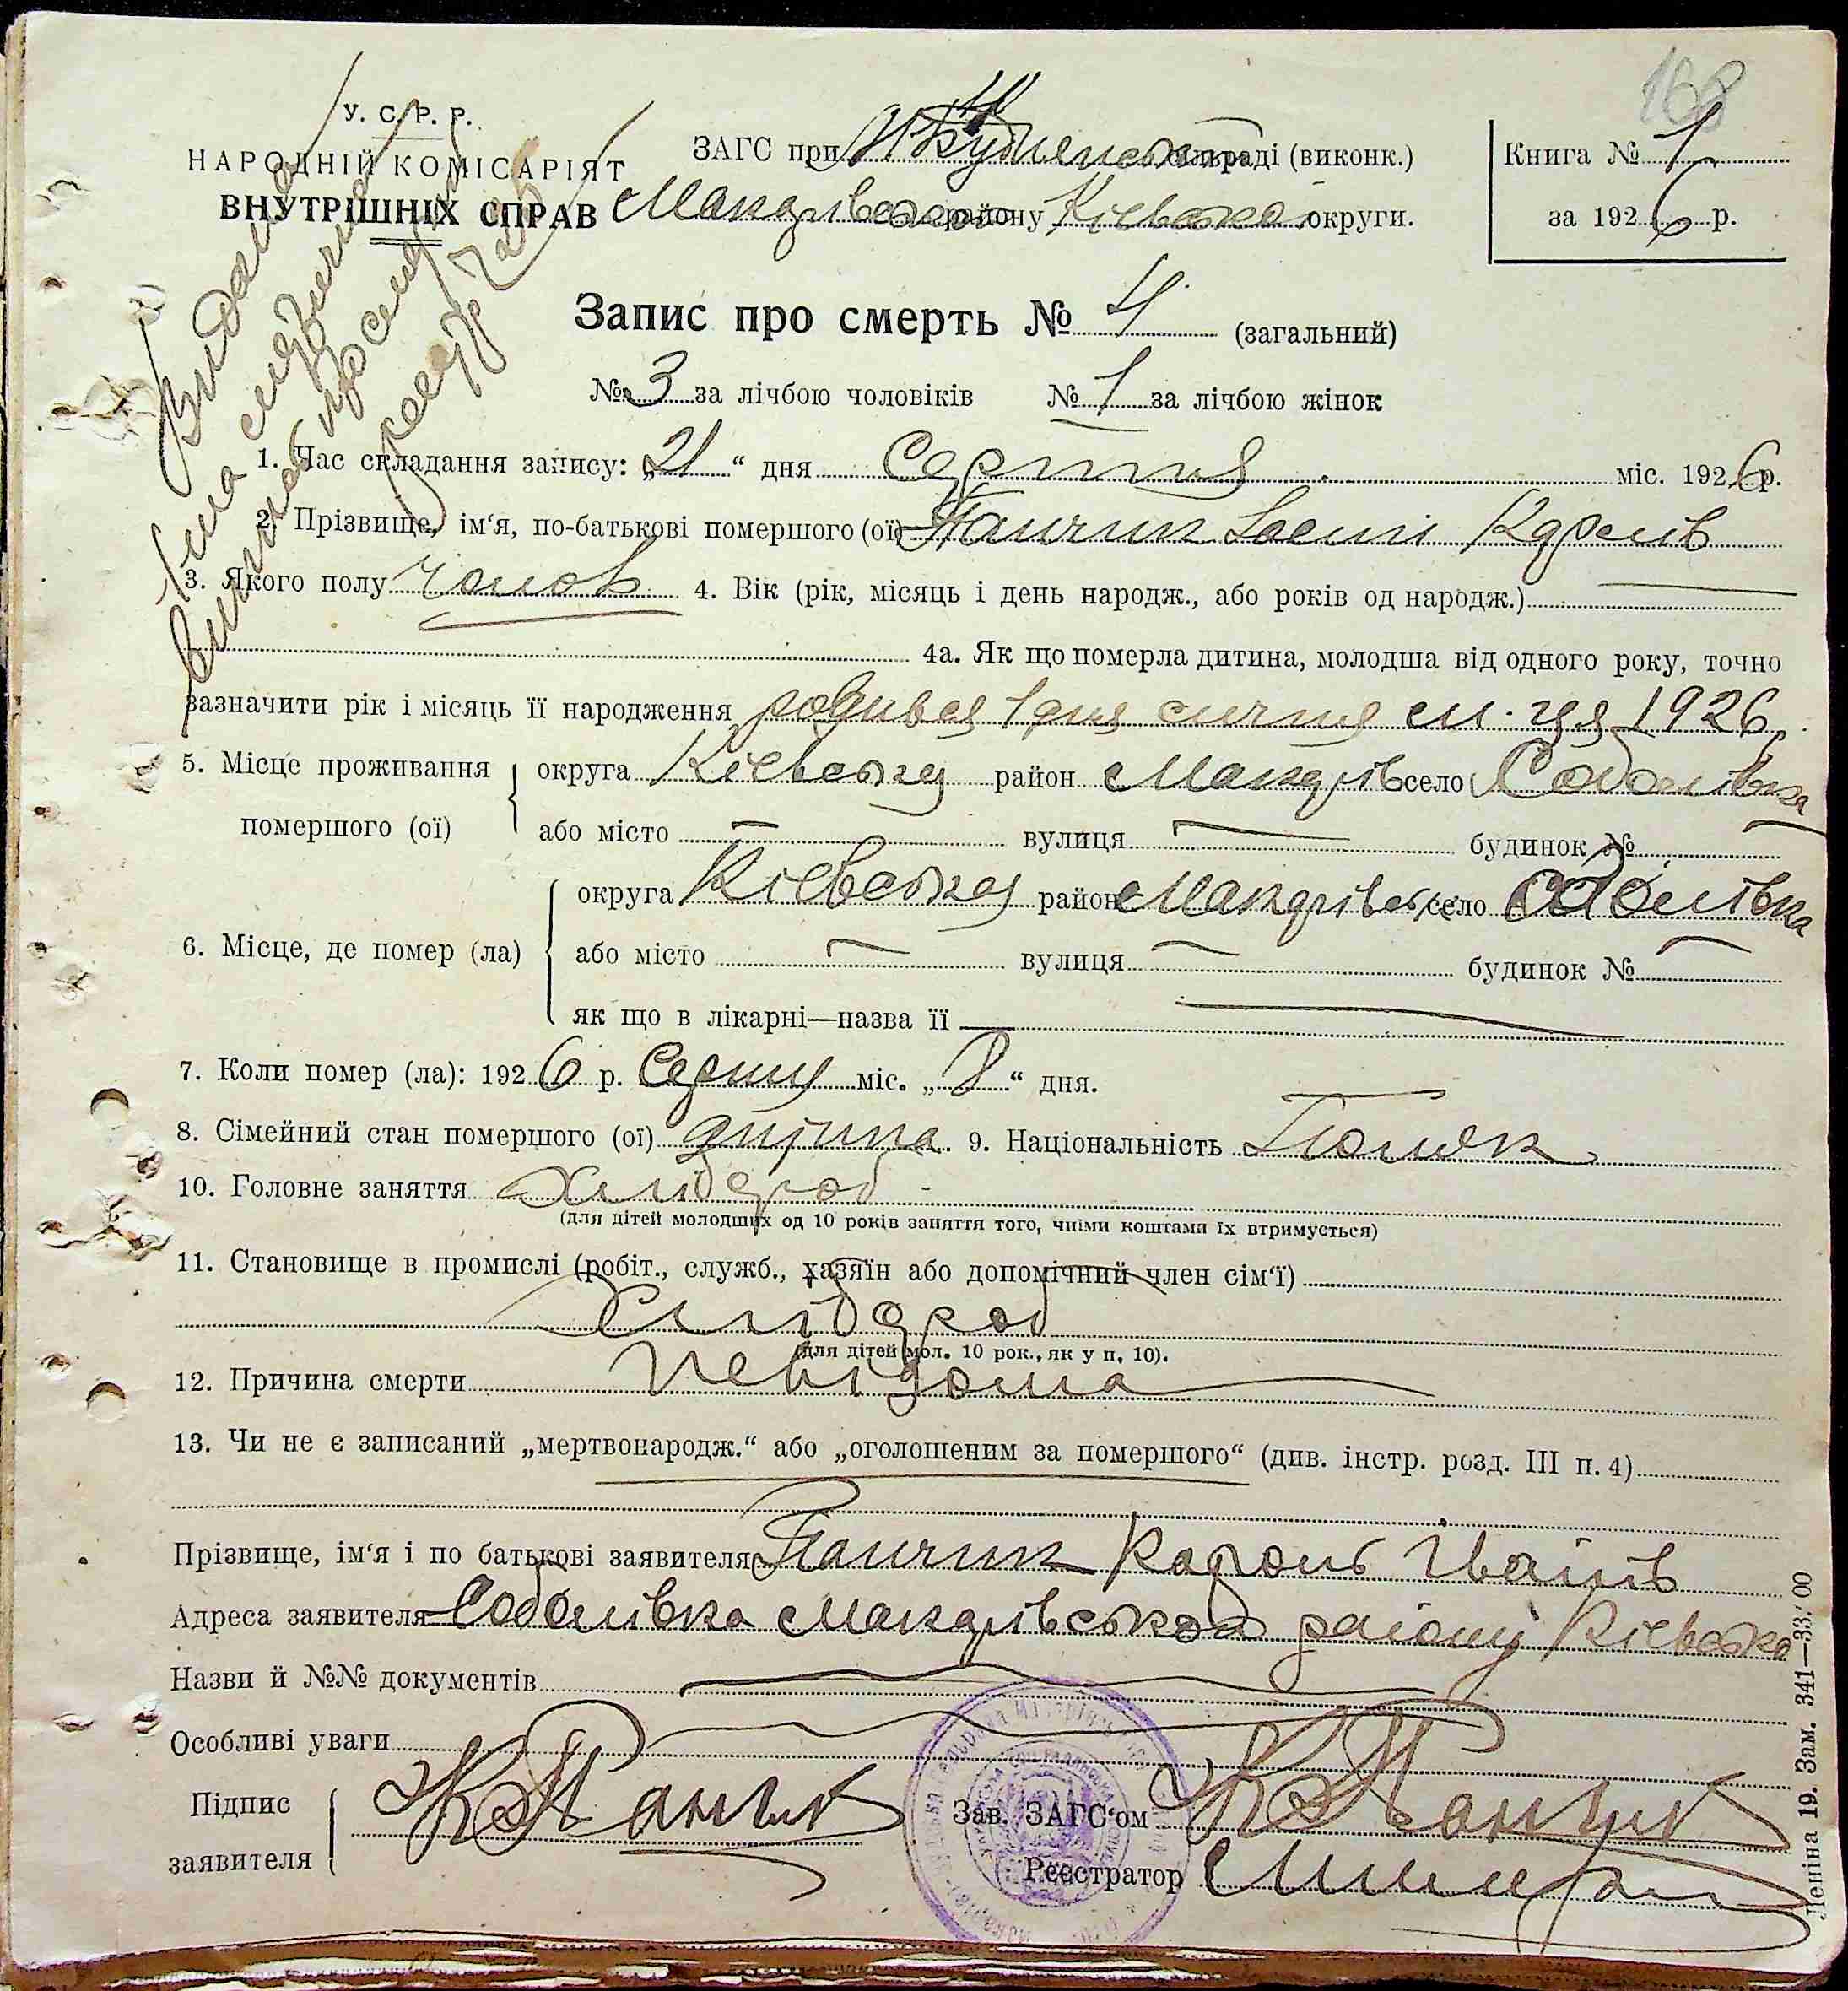 168
У. С. Р. Р.
НАРОДНІЙ КОМІСАРІЯТ
ВНУТРІШНІХ СПРАВ
ЗАГС при сільраді (виконк.)
району Кіевської округи.
Книга № 1
за 1926 р.
Запис про смерть № 4 (загальний)
№ 3 за лічбою чоловіків № 1 за лічбою жінок
1. Час складання запису: „21“ дня Серпня міс. 1926 р.
2. Прізвище, ім‘я, по-батькові помершого (ої) Панчик
3. Якого полу чолов 4. Вік (рік, місяць і день народж., або років од народж.)
4а. Як що померла дитина, молодша від одного року, точно
зазначити рік і місяць її народження родився 1 дня сичня м-ця 1926
5. Місце проживання помершого (ої)
округа Кіевська район Макарів село Соболівка
або місто — вулиця — будинок № —
6. Місце, де помер (ла)
округа Кіевська район Макарівськ село Соболівка
або місто — вулиця — будинок № —
як що в лікарні—назва її —
7. Коли помер (ла): 1926 р. Серпня міс. „8“ дня.
8. Сімейний стан помершого (ої) дитина 9. Національність Поляк
10. Головне заняття Хлібороб
(для дітей молодших од 10 років заняття того, чиїми коштами їх втримується)
11. Становище в промислі (робіт., служб., хазяїн або допомічний член сім‘ї)
Хлібороб
(для дітей мол. 10 рок., як у п. 10).
12. Причина смерти Невідома
13. Чи не є записаний „мертвонародж.“ або „оголошеним за помершого“ (див. інстр. розд. III п. 4)
Прізвище, ім‘я і по батькові заявителя Панчик Кароль Іванів
Адреса заявителя Соболівка Макарівського району Кіевсько
Назви й №№ документів
Особливі уваги
Підпис заявителя К Панчик
Зав. ЗАГС‘ом К Панчик
Реєстратор
Леніна 19. Зам. 341—33.‘00